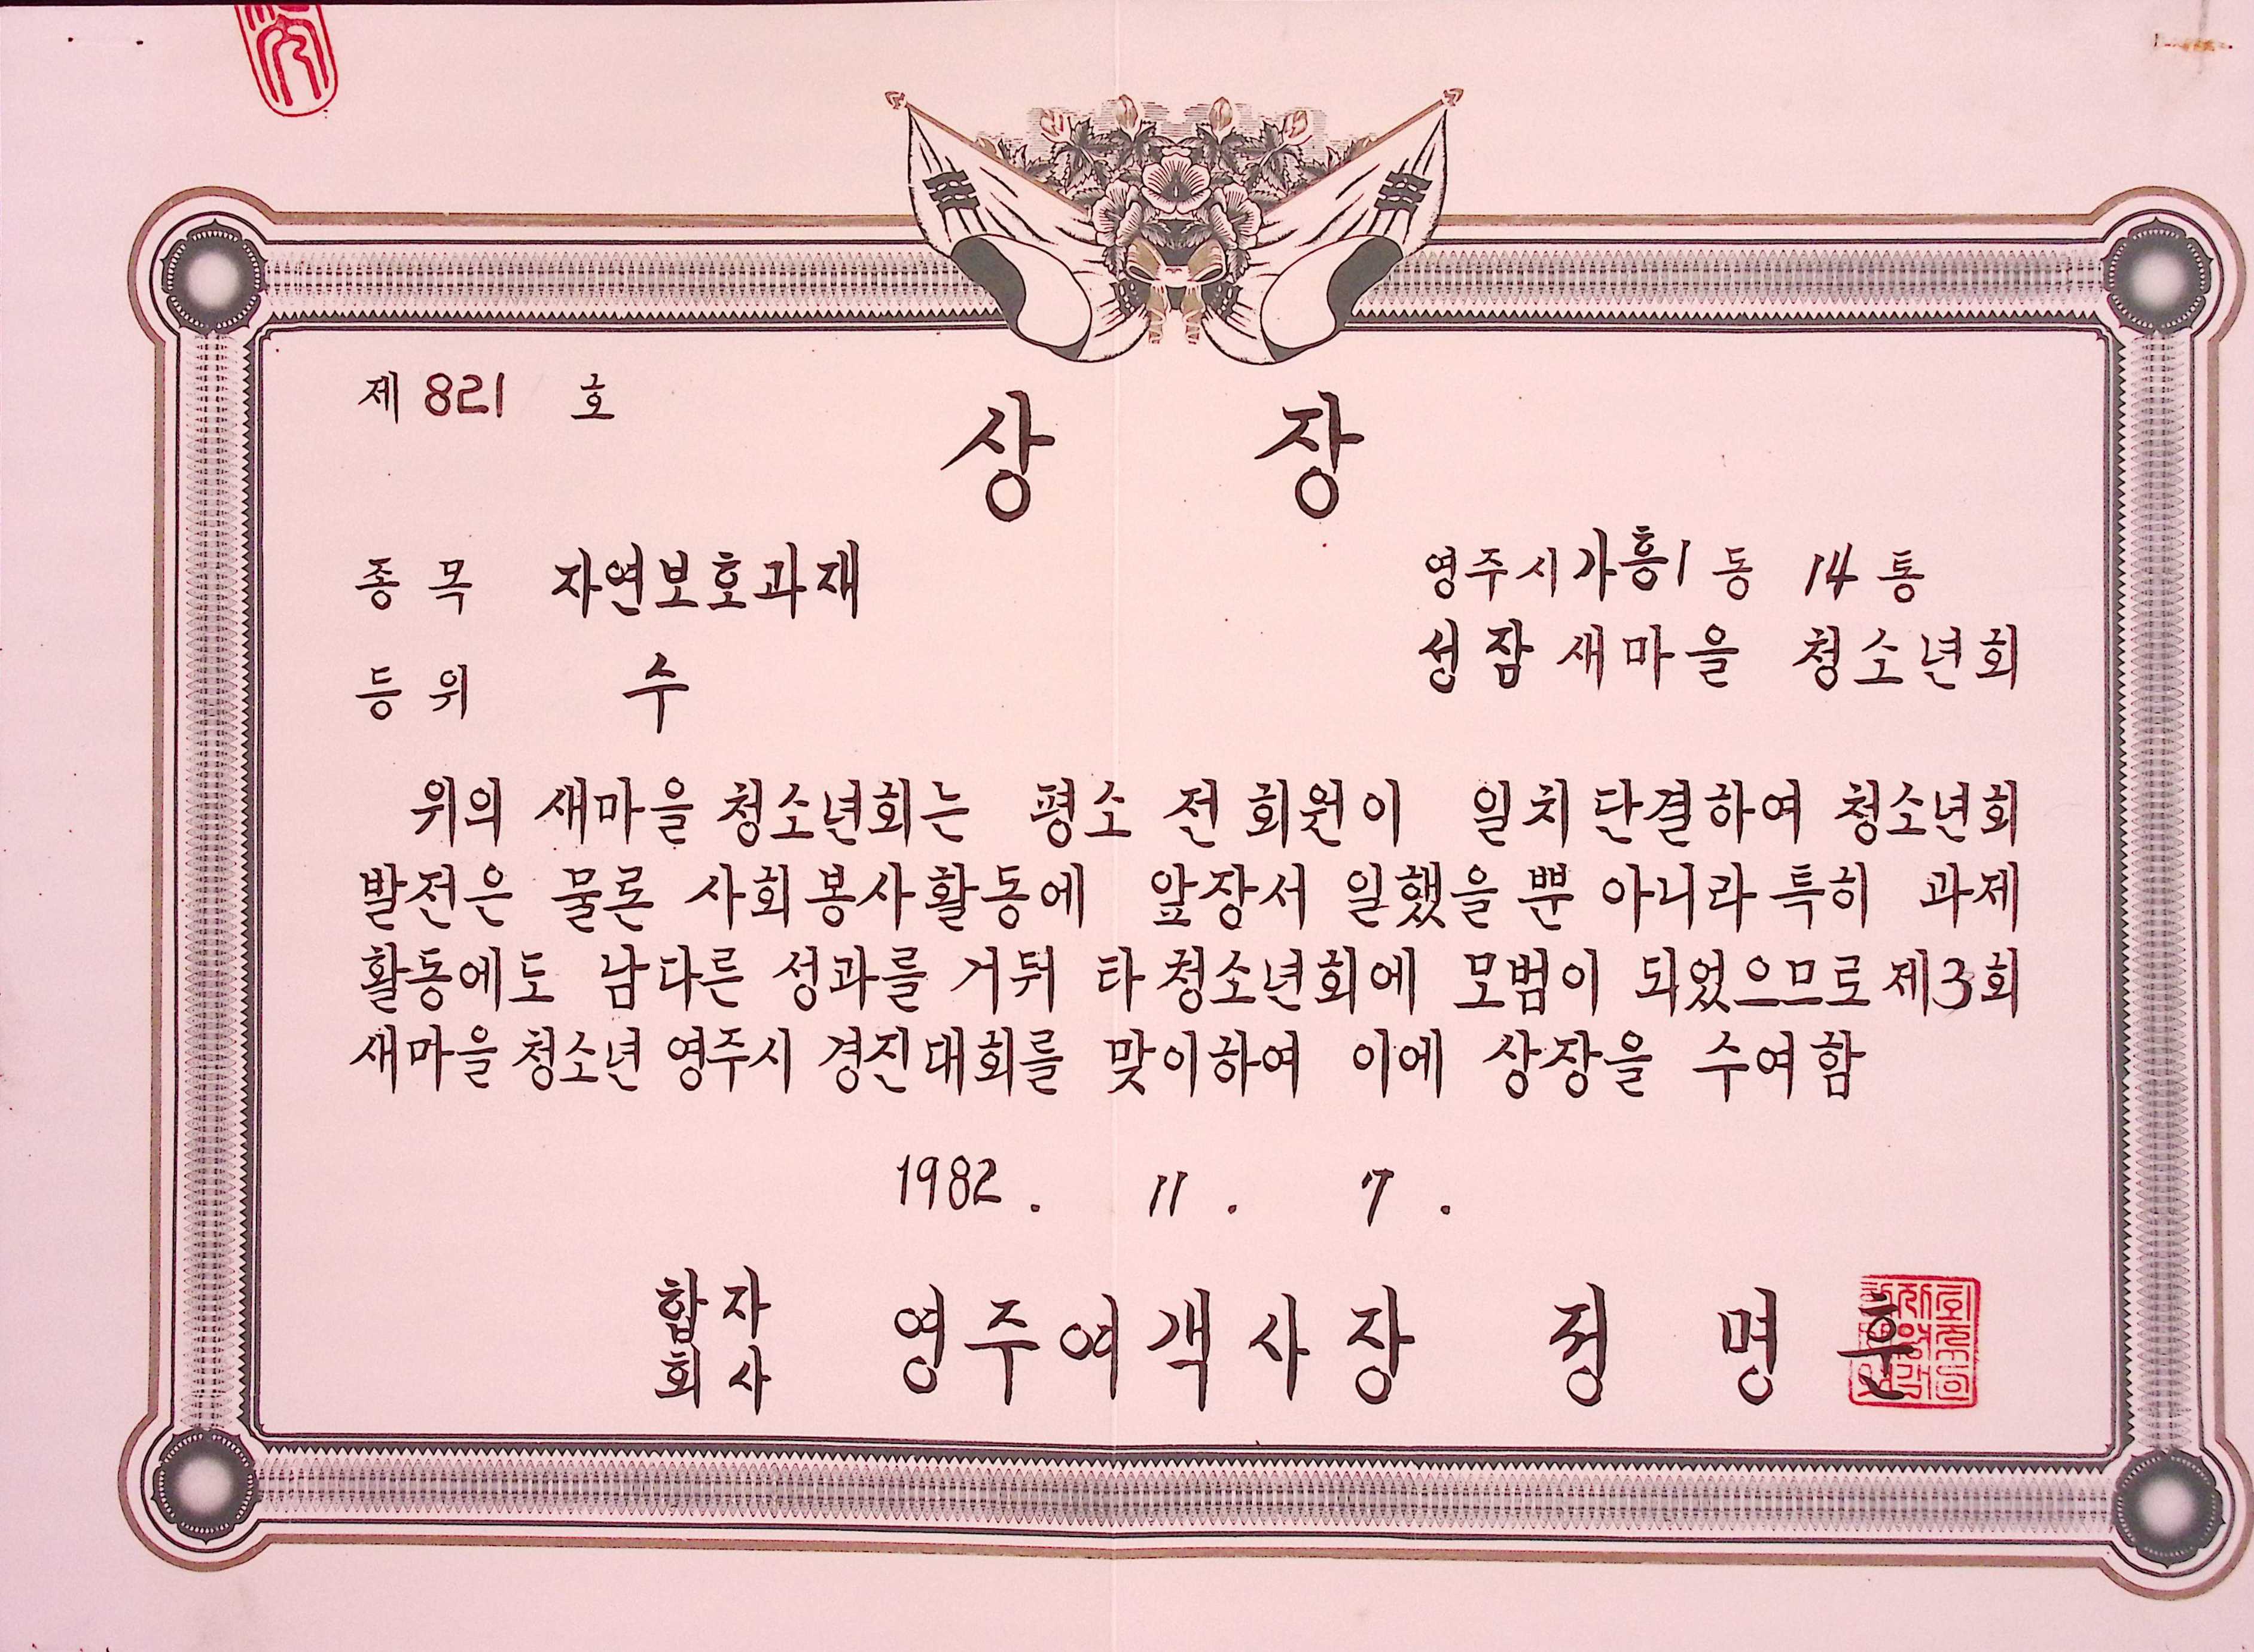 제 821 호
상 장
종 목 자연보호과재
영주시가흥1동 14통
등 위 수
성잠 새마을 청소년회
위의 새마을 청소년회는 평소 전 회원이 일치단결하여 청소년회
발전은 물론 사회봉사활동에 앞장서 일했을 뿐 아니라 특히 과제
활동에도 남다른 성과를 거둬 타 청소년회에 모범이 되었으므로 제3회
새마을 청소년 영주시 경진대회를 맞이하여 이에 상장을 수여함
1982. 11. 7.
합자
회사
영주여객사장 정 명 훈